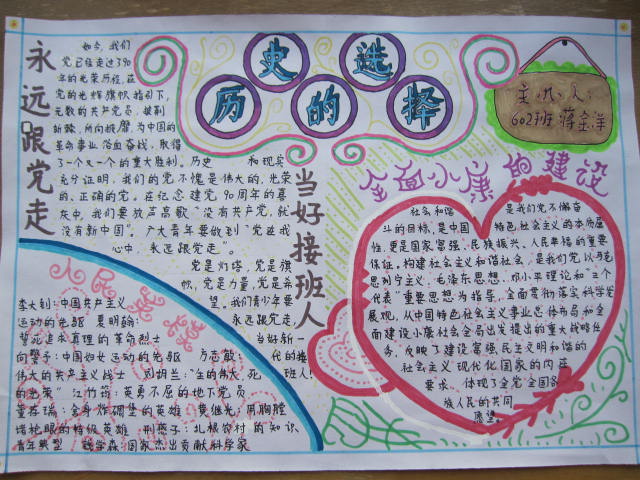 历史的选择
主办人:
602班 蒋金洋
永远跟党走
如今,我们
党已经走过了90
年的光荣历程,在
党的光辉旗帜指引下,
无数的共产党员,披荆
斩棘,所向披靡,为中国的
革命事业浴血奋战,取得
了一个又一个的重大胜利。历史和现实
充分证明,我们的党不愧是伟大的,光荣
的,正确的党。在纪念建党90周年的喜
庆中,我们要放声高歌“没有共产党,就
没有新中国”。广大青年要做到“党在我
心中,永远跟党走”。
党是灯塔,党是旗
帜,党是力量,党是希
望。我们青少年要
永远跟党走,
当好新一
代的接
班人!
当好接班人
人民英雄
李大钊:中国共产主义
运动的先驱 夏明翰:
誓死追求真理的革命烈士
向警予:中国妇女运动的先驱 方志敏:
伟大的共产主义战士 刘胡兰:“生的伟大,死
的光荣” 江竹筠:英勇不屈的地下党员
董存瑞:舍身炸碉堡的英雄 黄继光:用胸膛
堵枪眼的特级英雄 邢燕子:扎根农村的知识
青年典型 钱学森:国家杰出贡献科学家
全面小康的建设
社会和谐是我们党不懈奋
斗的目标,是中国特色社会主义的本质属
性,更是国家富强、民族振兴、人民幸福的重要
保证。构建社会主义和谐社会,是我们党以马克
思列宁主义、毛泽东思想、邓小平理论和“三个
代表”重要思想为指导,全面贯彻落实科学发
展观,从中国特色社会主义事业总体布局和全
面建设小康社会全局出发提出的重大战略任
务,反映了建设富强民主文明和谐的
社会主义现代化国家的内在
要求,体现了全党全国各
族人民的共同
愿望。